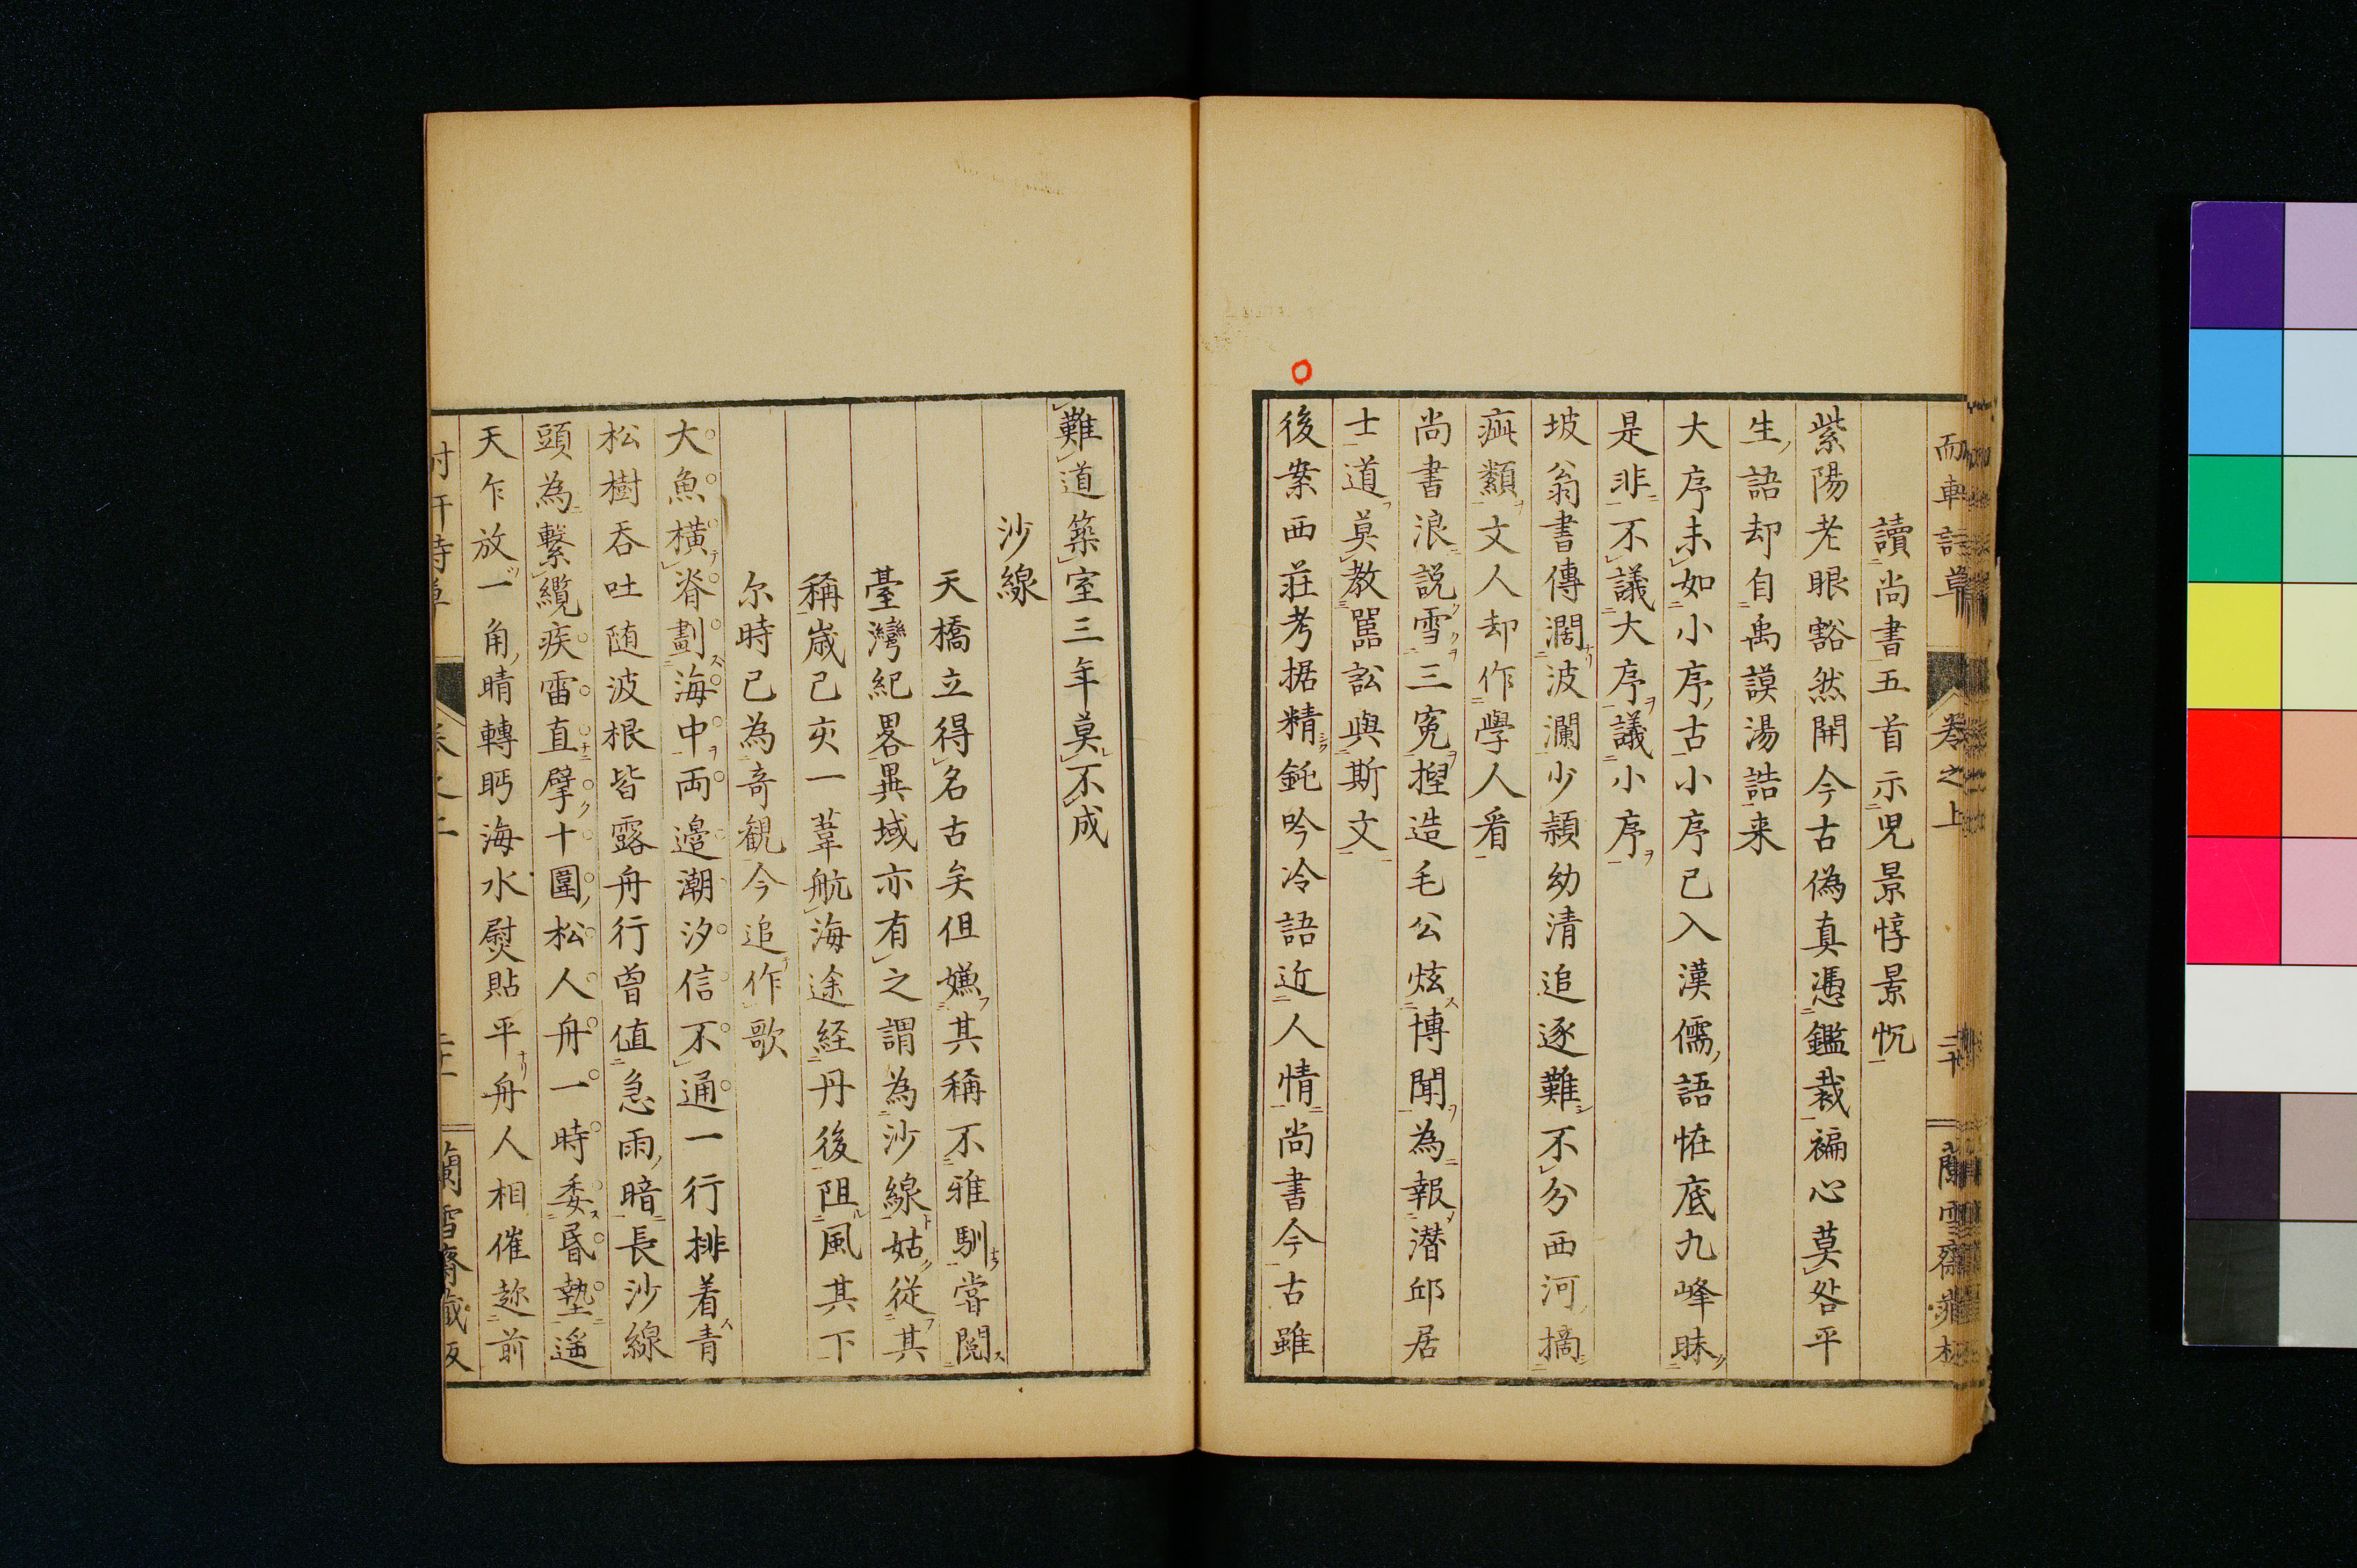 讀尚書五首示児景惇景忱
紫陽老眼豁然開今古偽真憑鑑裁褊心莫咎平
生語却自禹謨湯誥来
大序未如小序古小序已入漢儒語怪底九峰昧
是非不議大序議小序
坡翁書傳濶波瀾少頴幼清追逐難不分西河摘
疵纇文人却作學人看
尚書浪説雪三寃揑造毛公炫博聞為報潜邱居
士道莫教嚚訟與斯文
後案西莊考据精鈍吟冷語近人情尚書今古雖
難道築室三年莫不成
沙線
天橋立得名古矣但嫌其稱不雅馴嘗閲
臺灣紀畧異域亦有之謂為沙線姑従其
稱歳己亥一葦航海途経丹後阻風其下
尔時已為竒観今追作歌
大魚横脊劃海中両邉潮汐信不通一行排着青
松樹吞吐随波根皆露舟行曽値急雨暗長沙線
頭為繋纜疾雷直擘十圍松人舟一時委昏墊遥
天乍放一角晴轉眄海水熨貼平舟人相催趂前
卷之上
二十
蘭雪齋藏